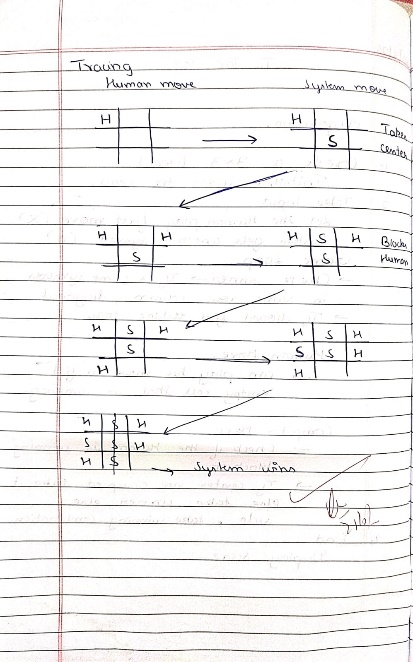 Tracing
Human move System move
H H Takes
S center
H H H S H Blocks
S S Human
H S H H S H
S S S H
H H
H S H
S S H
H S → System wins